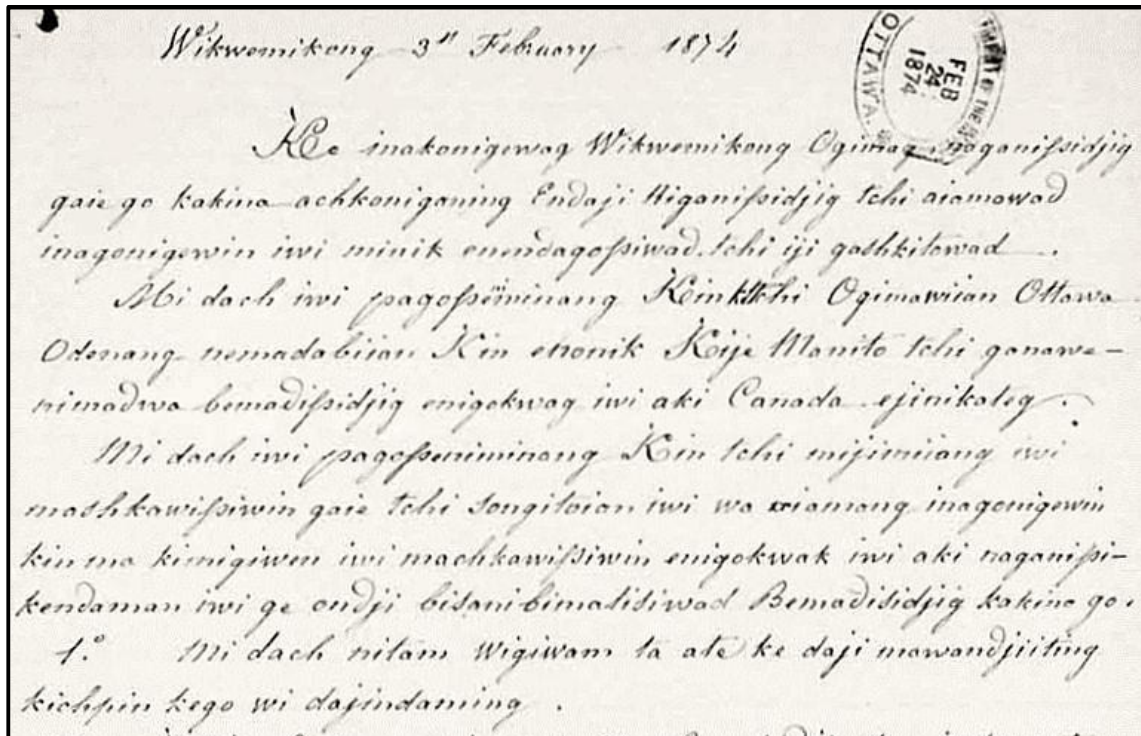 Wikwemikong 3rd February 1874
FEB
24
1874
OTTAWA
Ke inakonigewag Wikwemikong Ogimag naganissidjig
gaie go kakina achkoniganing Endaji Niganissidjig tchi aiamowad
inagonigewin iwi minik enendagossiwad tchi iji gashkitowad.
Mi dach iwi pagosseniminang Kin Kitchi Ogimawiian Ottawa
Odenang nemadabiian Kin enonik Kije Manito tchi ganawe-
nimadwa bemadissidjig enigokwag iwi aki Canada ejinikateg.
Mi dach iwi pagosseniminang Kin tchi mijimiiang iwi
mashkawissiwin gaie tchi songitoian iwi wa aiamang inagonigewin
kin ma kimigiwen iwi machkawissiwin enigokwak iwi aki naganissi-
kendaman iwi ge ondji bisanibimatisiwad Bemadisidjig kakina go.
1.° Mi dach nitam Wigiwam ta ate ke daji mawandjiiting
kichpin kego wi dajindaming.